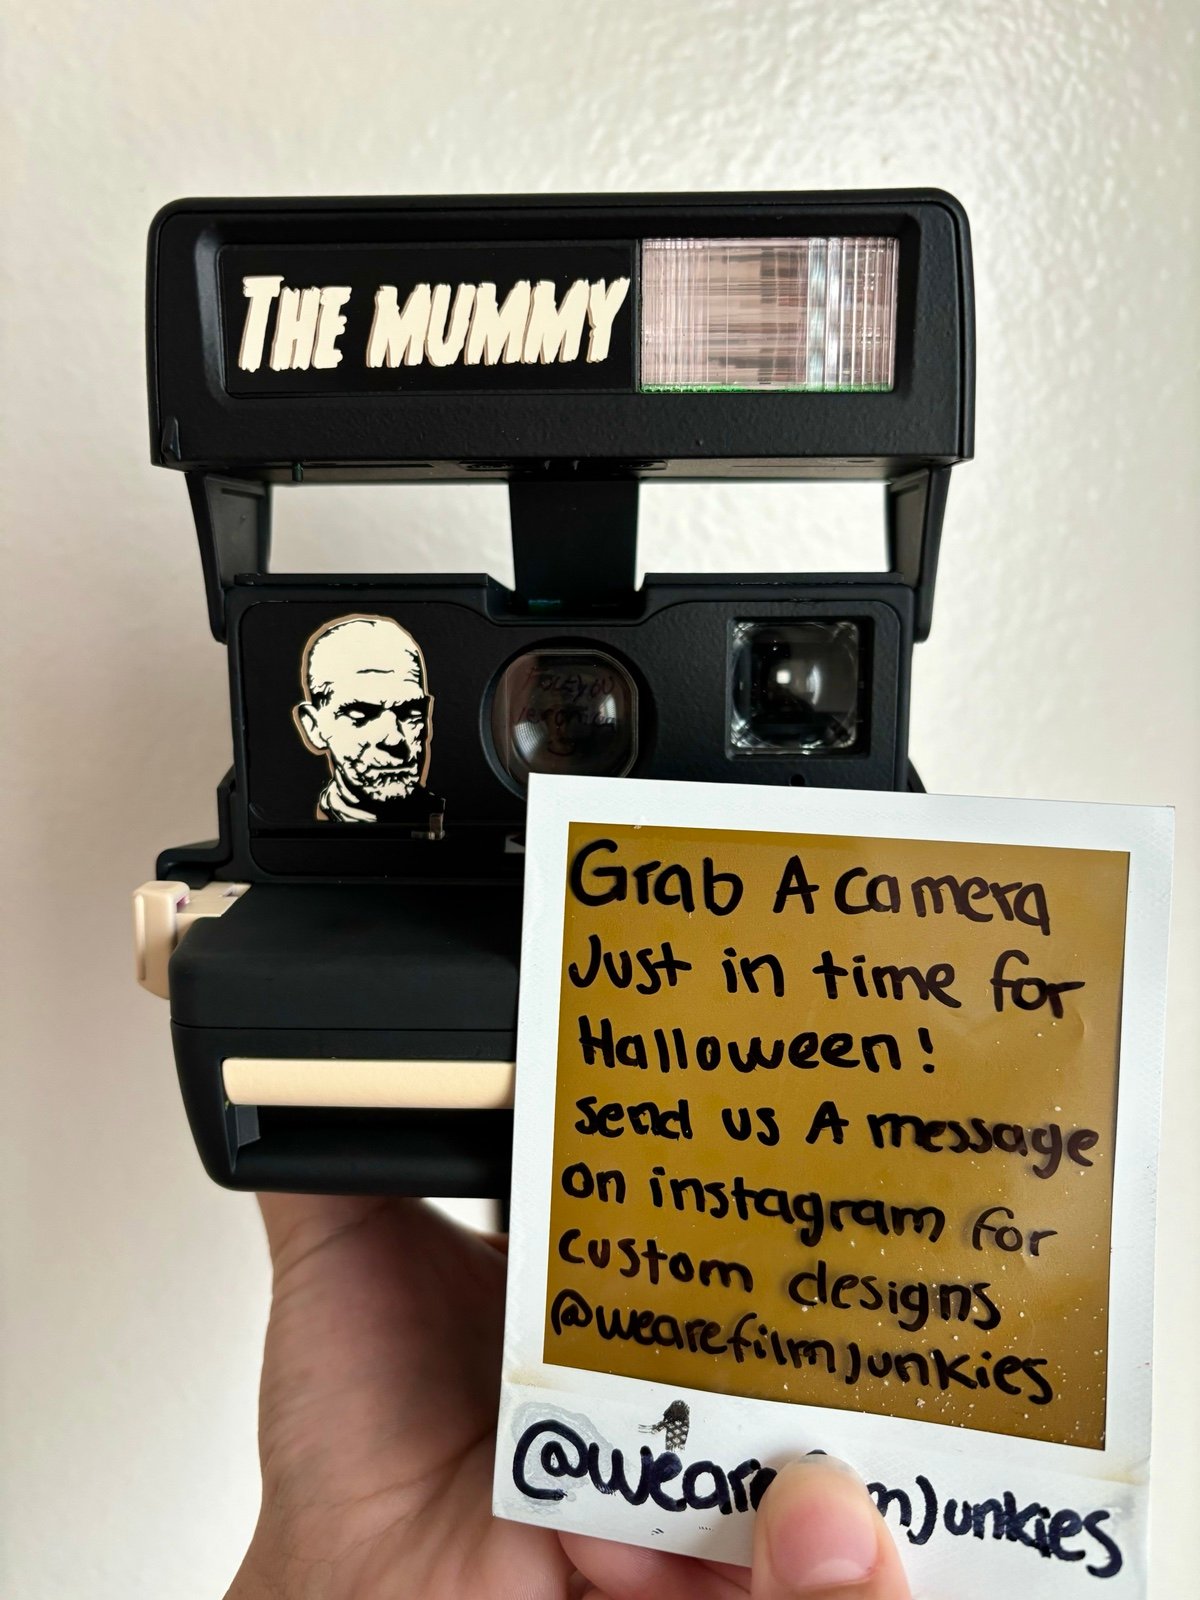 THE MUMMY
Grab A camera
Just in time for
Halloween!
send us A message
on instagram for
custom designs
@wearefilmjunkies
@weare mJunkies